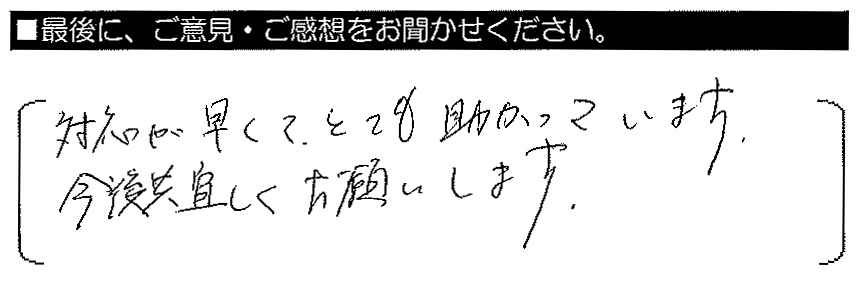 ■最後に、ご意見・ご感想をお聞かせください。
対応が早くて、とても助かっています。
今後共宜しくお願いします。